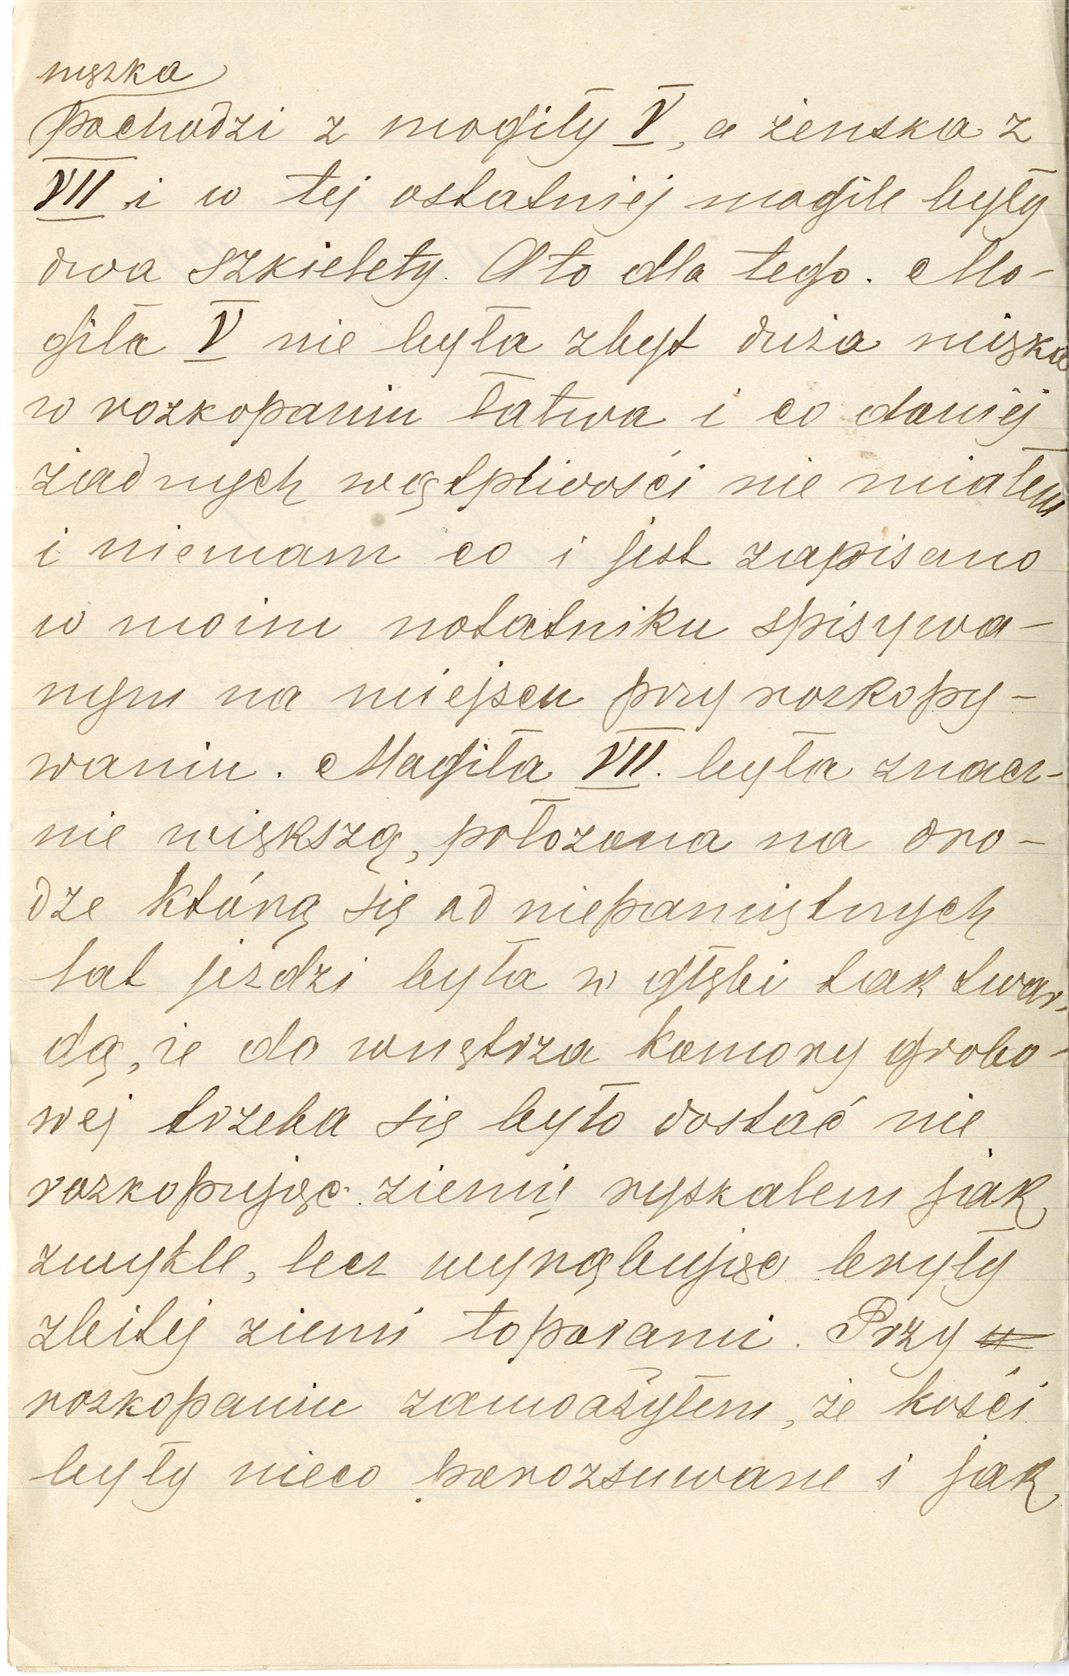 męzka
pochodzi z mogiły V, a żenska z
VII i w tej ostatniej mogile były
dwa szkielety. Oto dla tego. Mo-
giła V nie była zbyt duża mięka
w rozkopaniu łatwa i co do niéj
żadnych wątpliwości nie miałem
i niemam co i jest zapisano
w moim notatniku spisywa-
nym na miejscu przy rozkopy-
waniu. Mogiła VII. była znacz-
nie większą, położona na dro-
dze którą się od niepamiętnych
lat jeździ była w głębi tak twar-
dą, że do wnętrza komory grobo-
wej trzeba się było dostać nie
rozkopując ziemię ryskalem jak
zwykle, lecz wyrąbując bryły
zbitej ziemi toporami. Przy
rozkopaniu zauważyłem, że kości
były nieco porozsuwane i jak